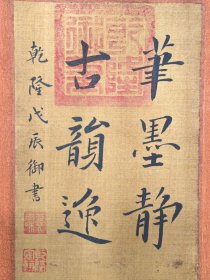 筆墨靜
古韻逸
乾隆戊辰御書